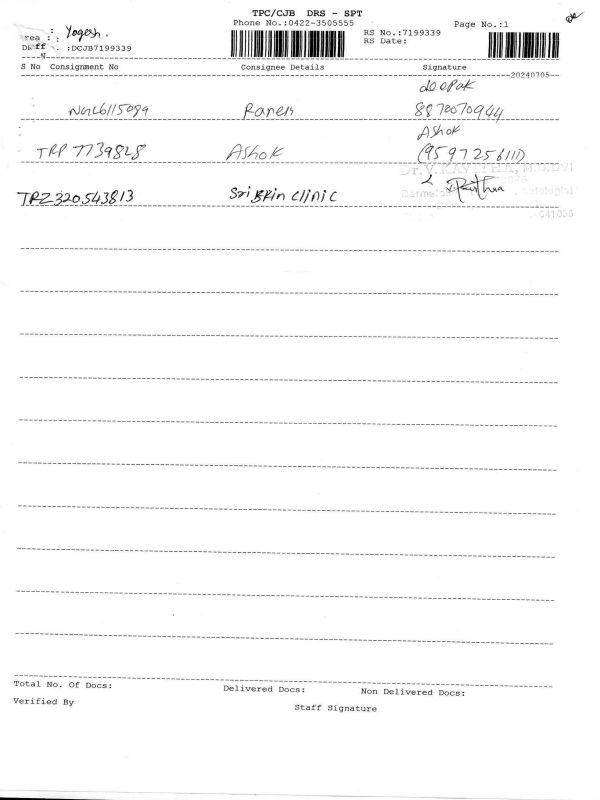 TPC/CJB DRS - SPT
Phone No.:0422-3505555
Page No.:1
RS No.:7199339
RS Date:
Yogesh.
:DCJB7199339
S No Consignment No Consignee Details Signature
20240705
deepak
Ranesh 8870070944
Ashok
TRP 7739828 Ashok (9597256111)
TRZ320543813 Sri Skin Clinic
Total No. Of Docs: Delivered Docs: Non Delivered Docs:
Verified By Staff Signature